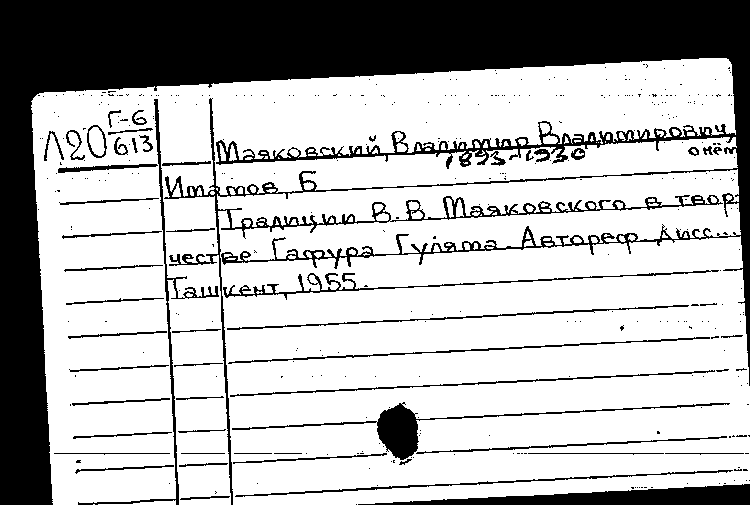 Г-6
Л20 613
Маяковский, Владимир Владимирович,
1893-1930 о нём
Иматов, Б
Традиции В.В. Маяковского в твор-
честве Гафура Гуляма. Автореф. дисс...
Ташкент, 1955.